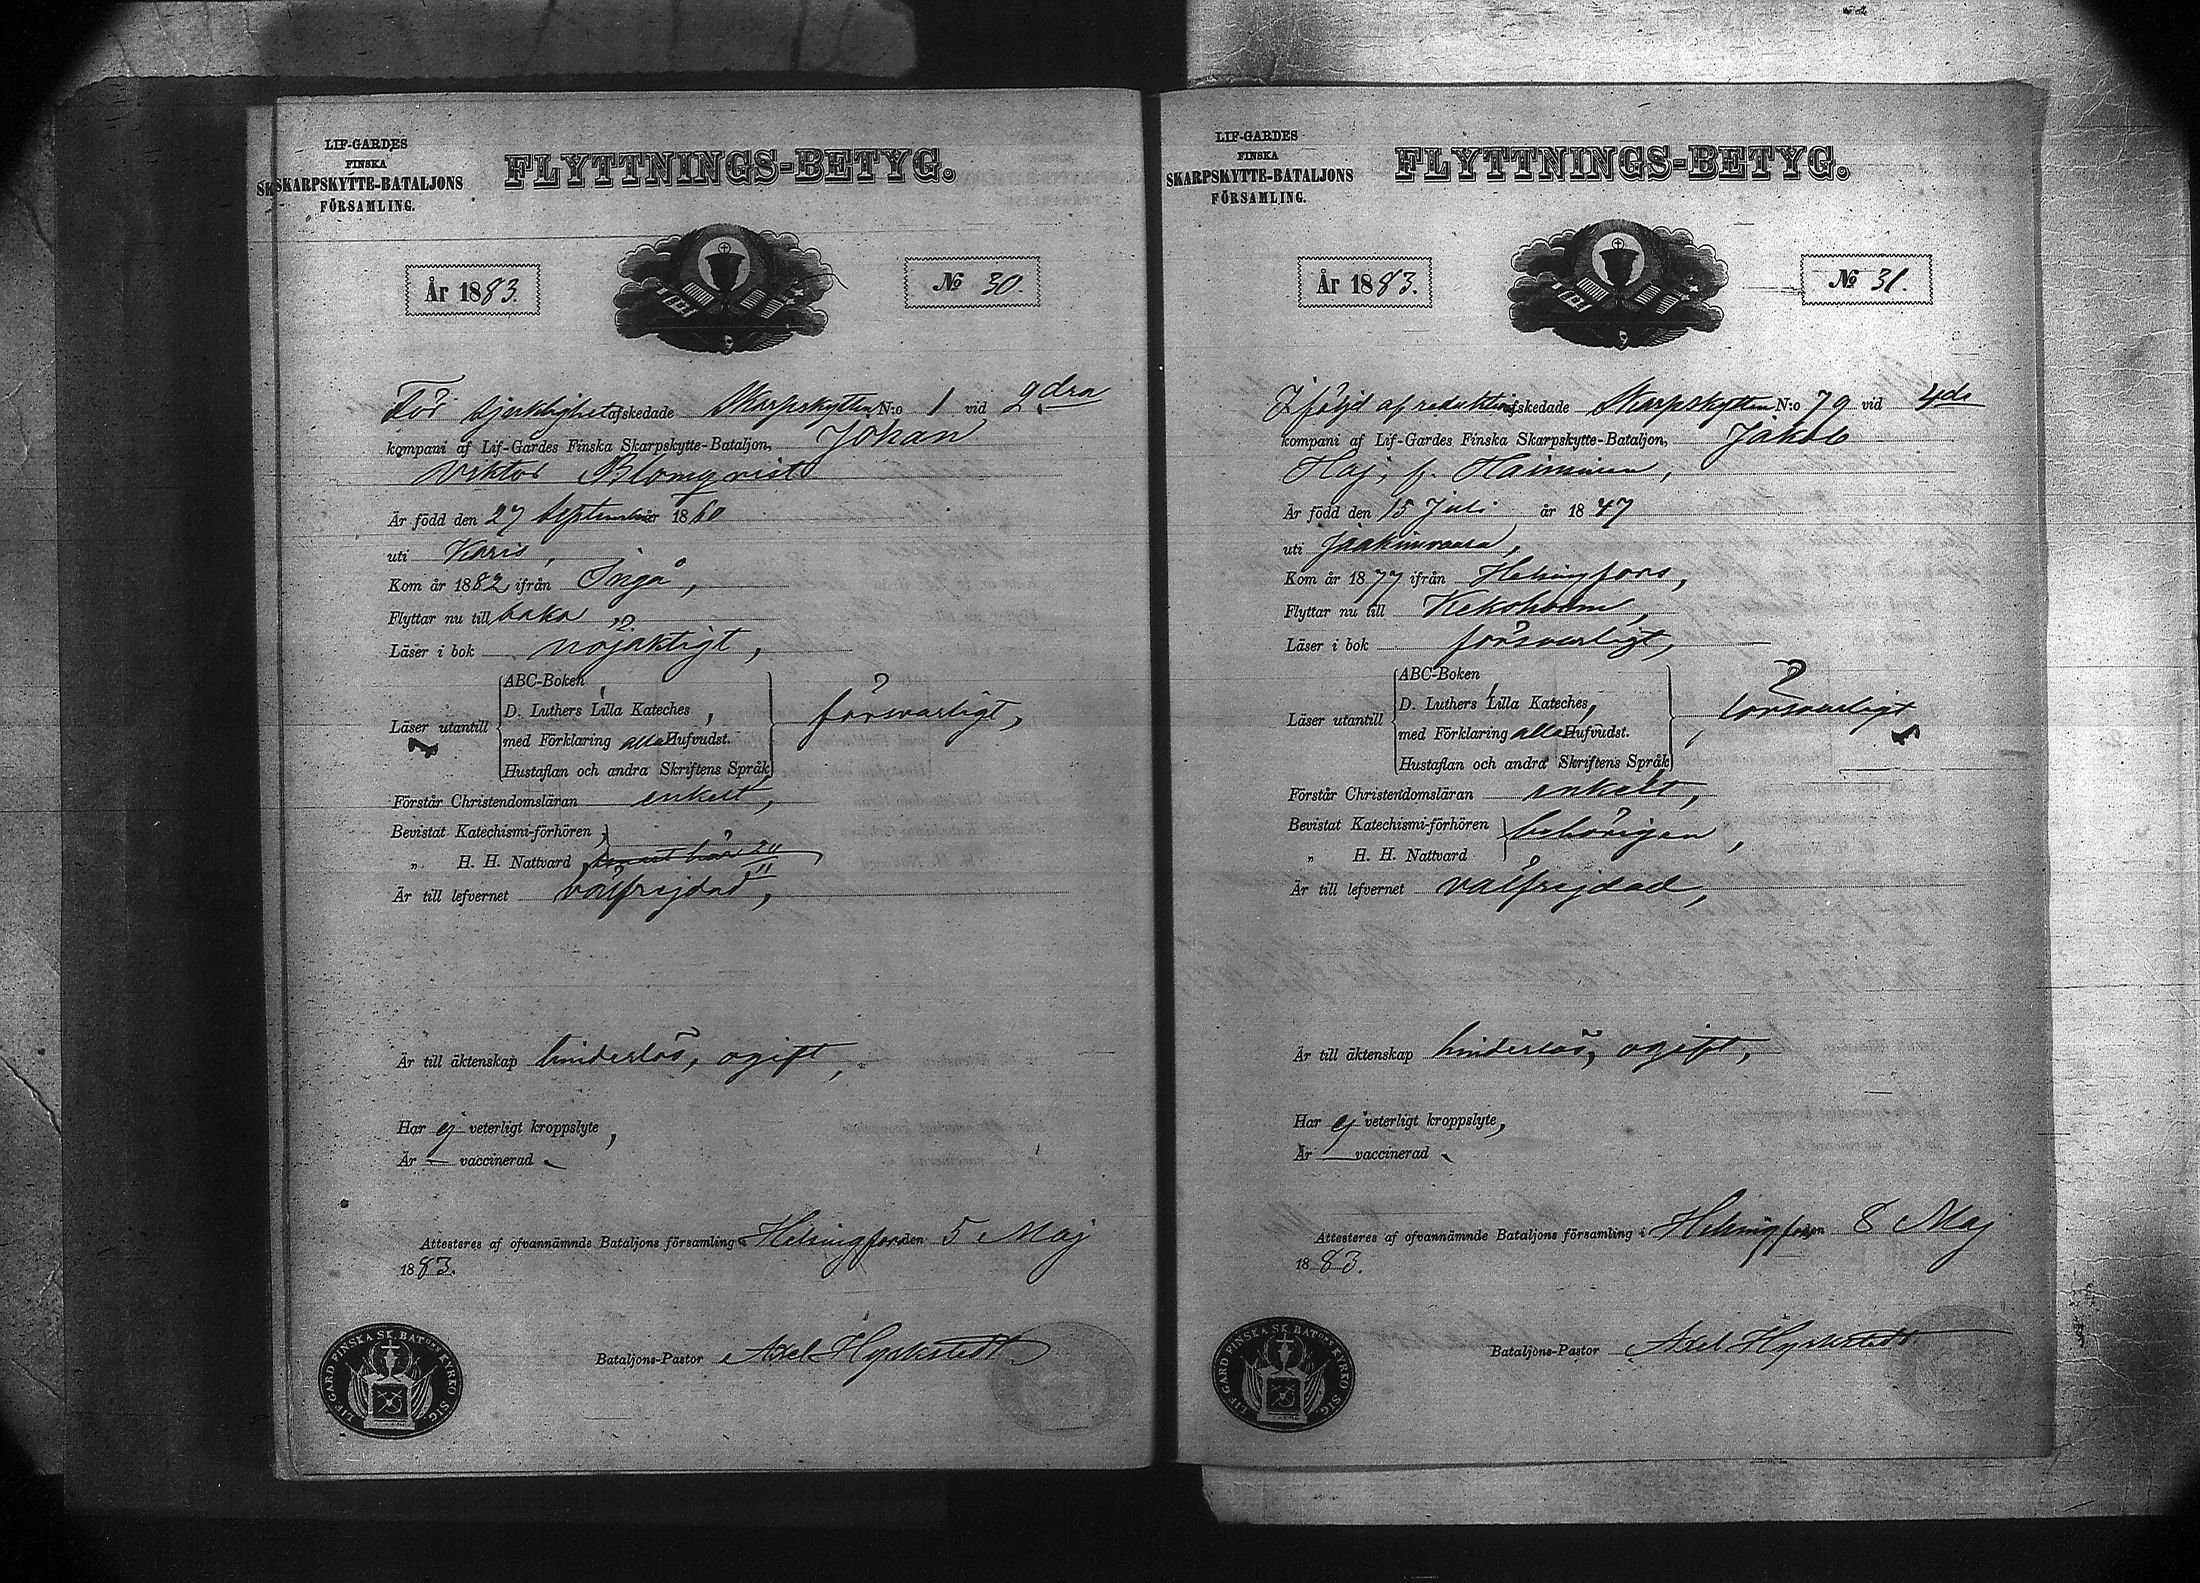 LIF-GARDES
FINSKA
SKARPSKYTTE-BATALJONS
FÖRSAMLING.
FLYTTNINGS-BETYG.
År 1883.
№ 30.
För sjuklighet afskedade Skarpskytten N:o 1 vid 2dra
kompani af Lif-Gardes Finska Skarpskytte-Bataljon, Johan
Viktor Blomqvist
Är född den 27 September 1860
uti Karis,
Kom år 1882 ifrån Ingå,
Flyttar nu till baka
Läser i bok nöjaktigt,
Läser utantill
ABC-Boken
D. Luthers Lilla Kateches,
med Förklaring alla Hufvudst.
Hustaflan och andra Skriftens Språk
försvarligt,
Förstår Christendomsläran enkelt,
Bevistat Katechismi-förhören
„ H. H. Nattvard
Är till lefvernet välfrejdad,
Är till äktenskap hinderlös, ogift,
Har ej veterligt kroppslyte,
Är — vaccinerad
Attesteres af ofvannämnde Bataljons församling i Helsingfors den 5 Maj
1883.
Bataljons-Pastor Axel Hyrkstedt
LIF GARD FINSKA SK. BATONS KYRKO SIG.
LIF-GARDES
FINSKA
SKARPSKYTTE-BATALJONS
FÖRSAMLING.
FLYTTNINGS-BETYG.
År 1883.
№ 31.
I följd af reduktion afskedade Skarpskytten N:o 79 vid 4de
kompani af Lif-Gardes Finska Skarpskytte-Bataljon, Jakob
Haj, f. Haiminen,
Är född den 15 Juli år 1847
uti Jaakimvaara,
Kom år 1877 ifrån Helsingfors,
Flyttar nu till Keksholm,
Läser i bok försvarligt,
Läser utantill
ABC-Boken
D. Luthers Lilla Kateches,
med Förklaring alla Hufvudst.
Hustaflan och andra Skriftens Språk
försvarligt
Förstår Christendomsläran enkelt,
Bevistat Katechismi-förhören
„ H. H. Nattvard
behörigen,
Är till lefvernet välfrejdad,
Är till äktenskap hinderlös, ogift,
Har ej veterligt kroppslyte,
Är — vaccinerad
Attesteres af ofvannämnde Bataljons församling i Helsingfors den 8 Maj
1883.
Bataljons-Pastor Axel Hyrkstedt
LIF GARD FINSKA SK. BATONS KYRKO SIG.